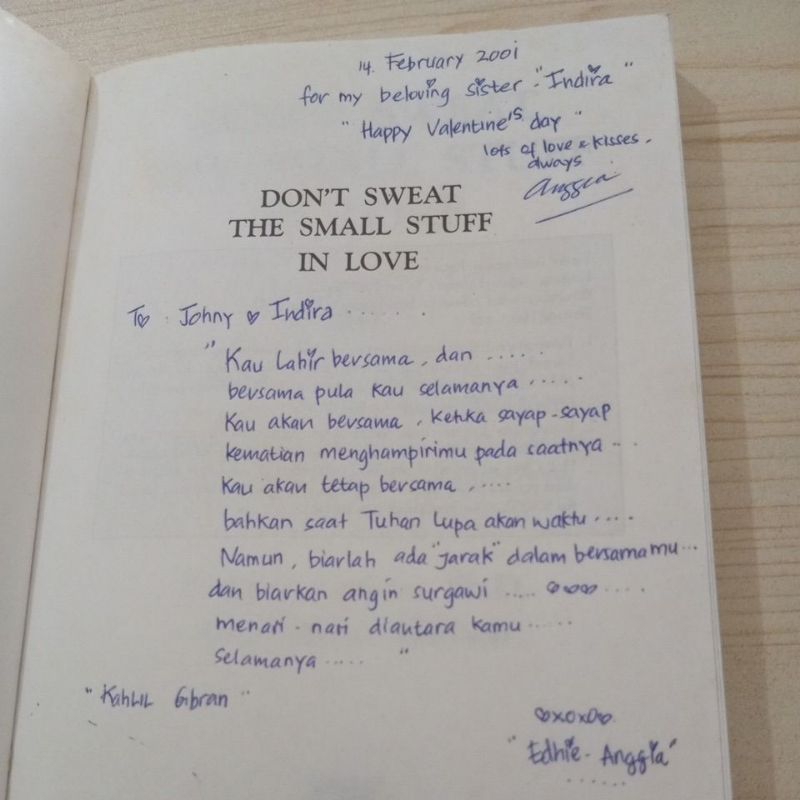 14. February 2001
for my beloving sister - "Indira"
"Happy Valentine's day"
lots of love & kisses.
always
Anggia
DON'T SWEAT
THE SMALL STUFF
IN LOVE
To : Johny ♡ Indira ......
"Kau Lahir bersama, dan .....
bersama pula kau selamanya .....
Kau akan bersama, ketika sayap-sayap
kematian menghampirimu pada saatnya ...
Kau akan tetap bersama, ....
bahkan saat Tuhan Lupa akan waktu ....
Namun, biarlah ada "jarak" dalam bersamamu ...
dan biarkan angin surgawi ..... ♡♡♡ ....
menari - nari diautara kamu .....
selamanya ..... "
"Kahlil Gibran"
♡xoxo♡
"Edhie - Anggia"
......